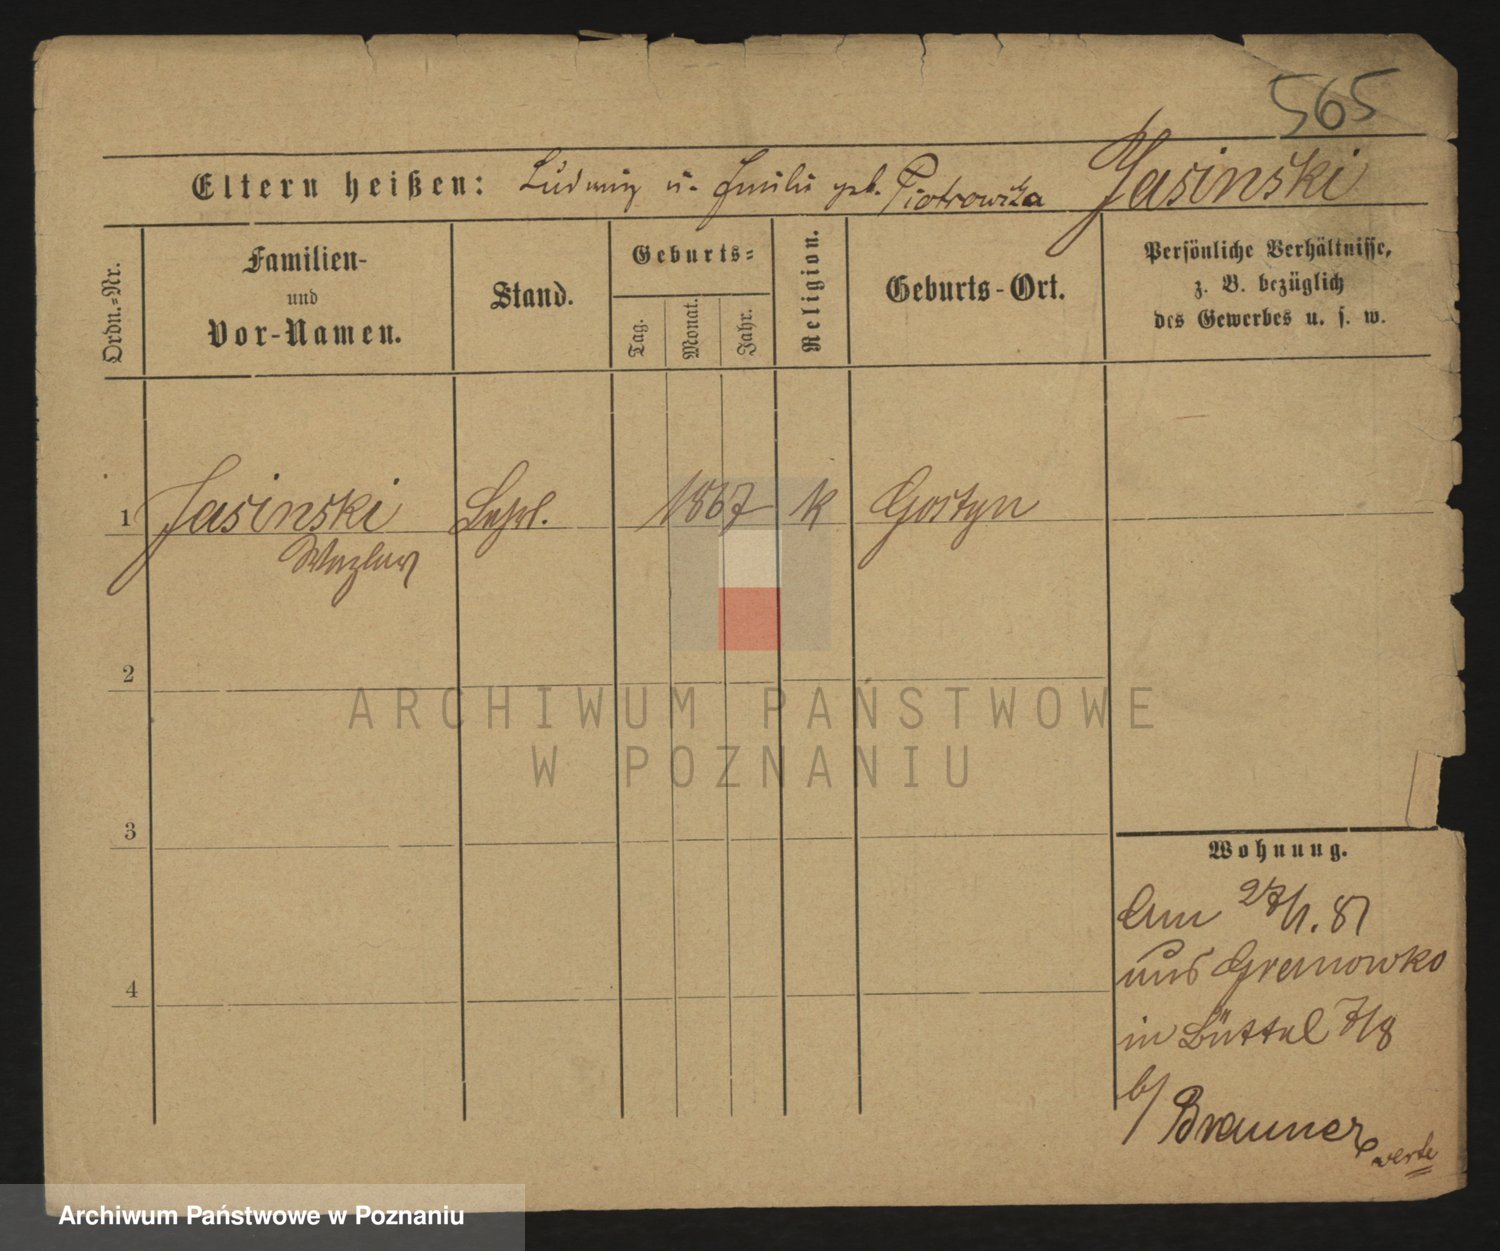 565
Eltern heißen: Ludwig u. Emilie geb. Piotrowska Jasinski
Ordn.-Nr.
Familien-
und
Vor-Namen.
Stand.
Geburts-
Tag.
Monat.
Jahr.
Religion.
Geburts-Ort.
Persönliche Verhältnisse,
z. B. bezüglich
des Gewerbes u. s. w.
1 Jasinski Lehrl. 1867 k Gostyn
Wazlaw
2
ARCHIWUM PAŃSTWOWE
W POZNANIU
3
4
Wohnung.
Am 27/1. 81
aus
in Büttel 7/8
b/ Brauner
Archiwum Państwowe w Poznaniu